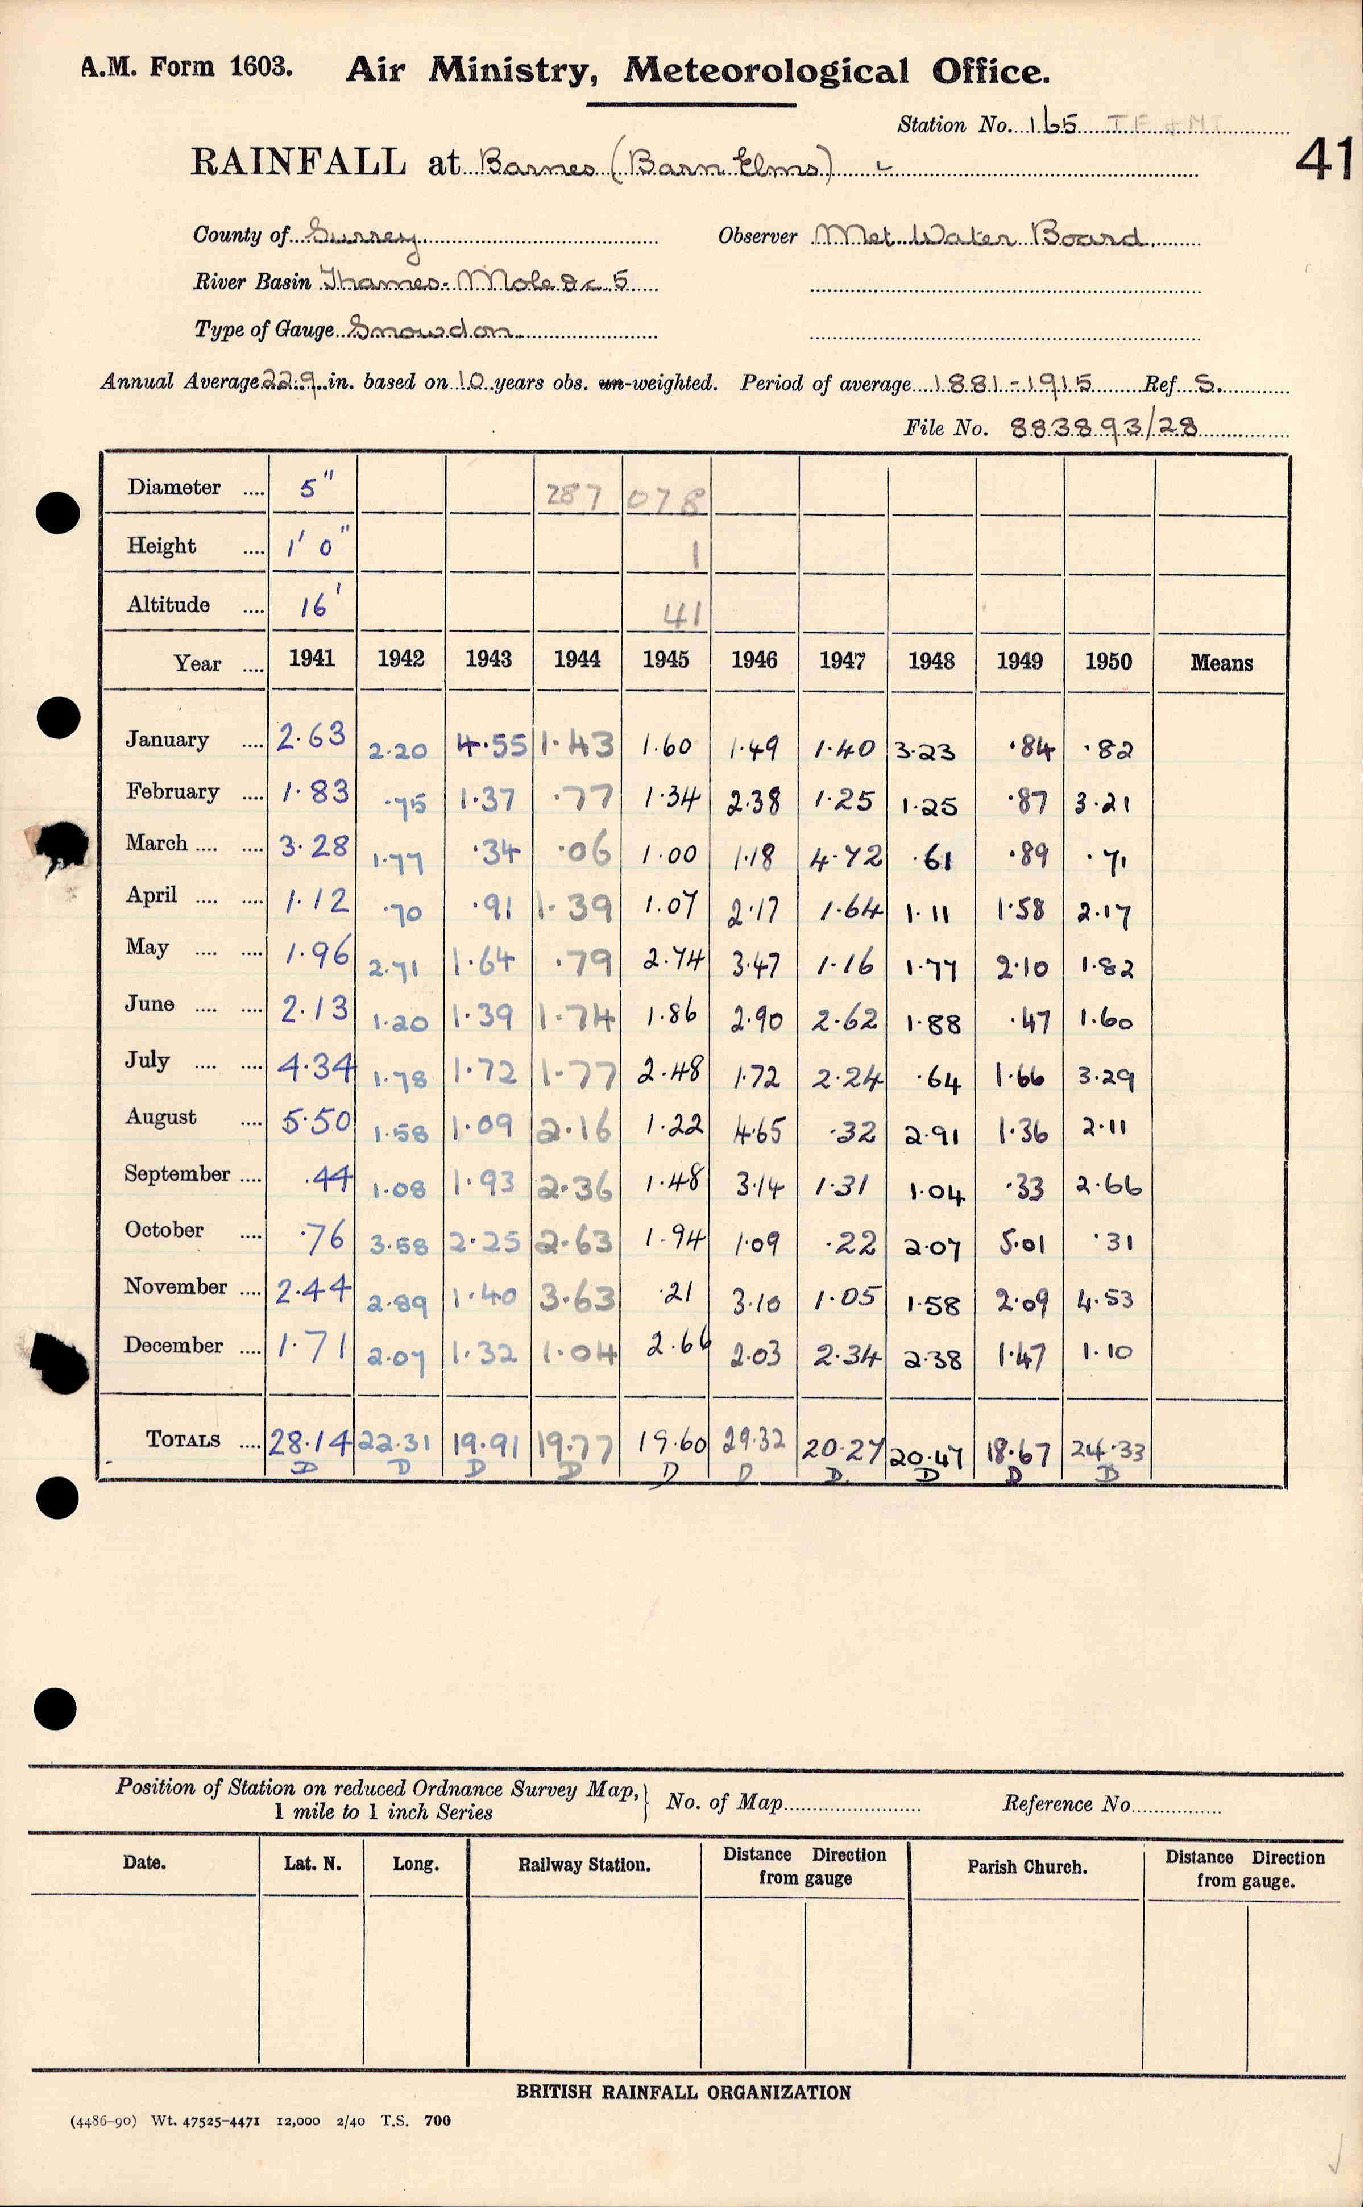 A.M. Form 1603. Air Ministry, Meteorological Office.
Station No. 165
41
RAINFALL at Barnes (Barn Elms)
County of Surrey Observer Met Water Board.
River Basin Thames. Mole &c 5
Type of Gauge Snowdon
Annual Average 22.9 in. based on 10 years obs. un-weighted. Period of average 1881-1915 Ref S.
File No. 883893/28
Diameter .... 5" 287 078
Height .... 1' 0" 1
Altitude .... 16' 41
Year .... 1941 1942 1943 1944 1945 1946 1947 1948 1949 1950 Means
January .... 2.63 2.20 4.55 1.43 1.60 1.49 1.40 3.23 .84 .82
February .... 1.83 .75 1.37 .77 1.34 2.38 1.25 1.25 .87 3.21
March .... .... 3.28 1.77 .34 .06 1.00 1.18 4.72 .61 .89 .71
April .... .... 1.12 .70 .91 1.39 1.07 2.17 1.64 1.11 1.58 2.17
May .... .... 1.96 2.71 1.64 .79 2.74 3.47 1.16 1.77 2.10 1.82
June .... .... 2.13 1.20 1.39 1.74 1.86 2.90 2.62 1.88 .47 1.60
July .... .... 4.34 1.78 1.72 1.77 2.48 1.72 2.24 .64 1.66 3.29
August .... 5.50 1.58 1.09 2.16 1.22 4.65 .32 2.91 1.36 2.11
September .... .44 1.08 1.93 2.36 1.48 3.14 1.31 1.04 .33 2.66
October .... .76 3.58 2.25 2.63 1.94 1.09 .22 2.07 5.01 .31
November .... 2.44 2.89 1.40 3.63 .21 3.10 1.05 1.58 2.09 4.53
December .... 1.71 2.07 1.32 1.04 2.66 2.03 2.34 2.38 1.47 1.10
TOTALS .... 28.14 22.31 19.91 19.77 19.60 29.32 20.27 20.47 18.67 24.33
D D D D D D D. D D D
Position of Station on reduced Ordnance Survey Map, 1 mile to 1 inch Series } No. of Map Reference No
Date. Lat. N. Long. Railway Station. Distance Direction from gauge Parish Church. Distance Direction from gauge.
BRITISH RAINFALL ORGANIZATION
(4486-90) Wt. 47525-4471 12,000 2/40 T.S. 700